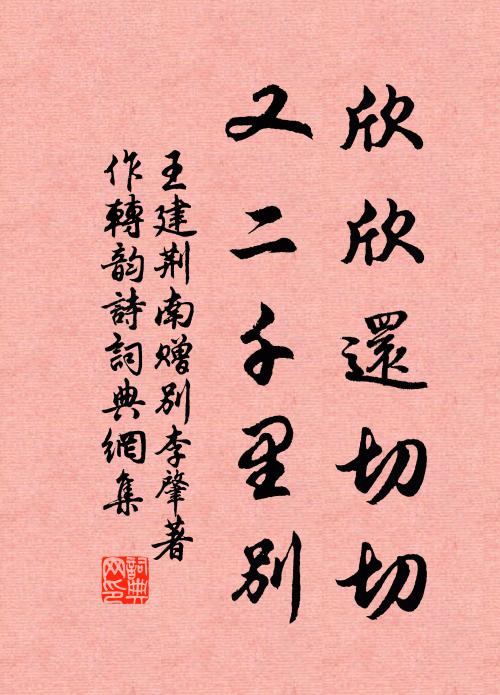 欣欣還切切
又二千里別
王建荆南赠别李肇著
作轉韵詩詞典網集
詞典
网印